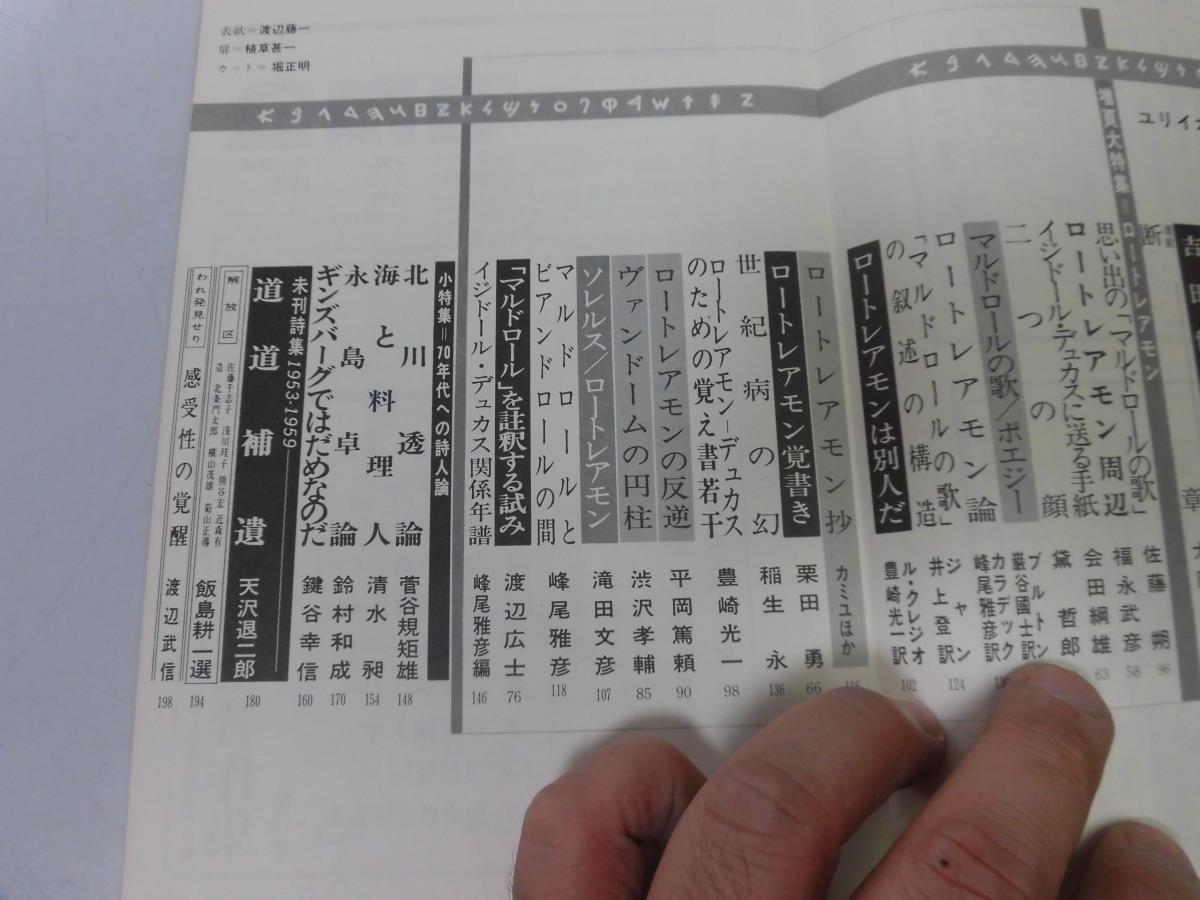 ユリイ
増頁大特集＝ロートレアモン
連載
断章
思い出の「マルドロールの歌」 佐藤朔 96
ロートレアモン周辺 福永武彦 58
イジドール・デュカスに送る手紙 会田綱雄 63
二つの顔 黛哲郎
マルドロールの歌／ポエジー ブルトン 巌谷國士訳
カラデック 峰尾雅彦訳
ロートレアモン論 ジャン 井上登訳 124
「マルドロールの歌」の叙述の構造 ル・クレジオ 豊崎光一訳 102
ロートレアモンは別人だ
ロートレアモン抄 カミユほか 115
ロートレアモン覚書き 栗田勇 66
世紀病の幻 稲生永 136
ロートレアモン－デュカスのための覚え書若干 豊崎光一 98
ロートレアモンの反逆 平岡篤頼 90
ヴァンドームの円柱 渋沢孝輔 85
ソレルス／ロートレアモン 滝田文彦 107
マルドロールとビアンドロールの間 峰尾雅彦 118
「マルドロール」を註釈する試み 渡辺広士 76
イジドール・デュカス関係年譜 峰尾雅彦編 146
小特集＝70年代への詩人論
北川透論 菅谷規矩雄 148
海と料理人 清水昶 154
永島卓論 鈴村和成 170
ギンズバーグではだめなのだ 鍵谷幸信 160
未刊詩集1953-1959
道道補遺 天沢退二郎 180
解放区 佐藤千志子 浅川珪子 熊谷宏 近森有造 北条門太郎 横山茂雄 菊山正導 飯島耕一選 194
われ発見せり 感受性の覚醒 渡辺武信 198
表紙＝渡辺藤一
扉＝植草甚一
カット＝堀正明